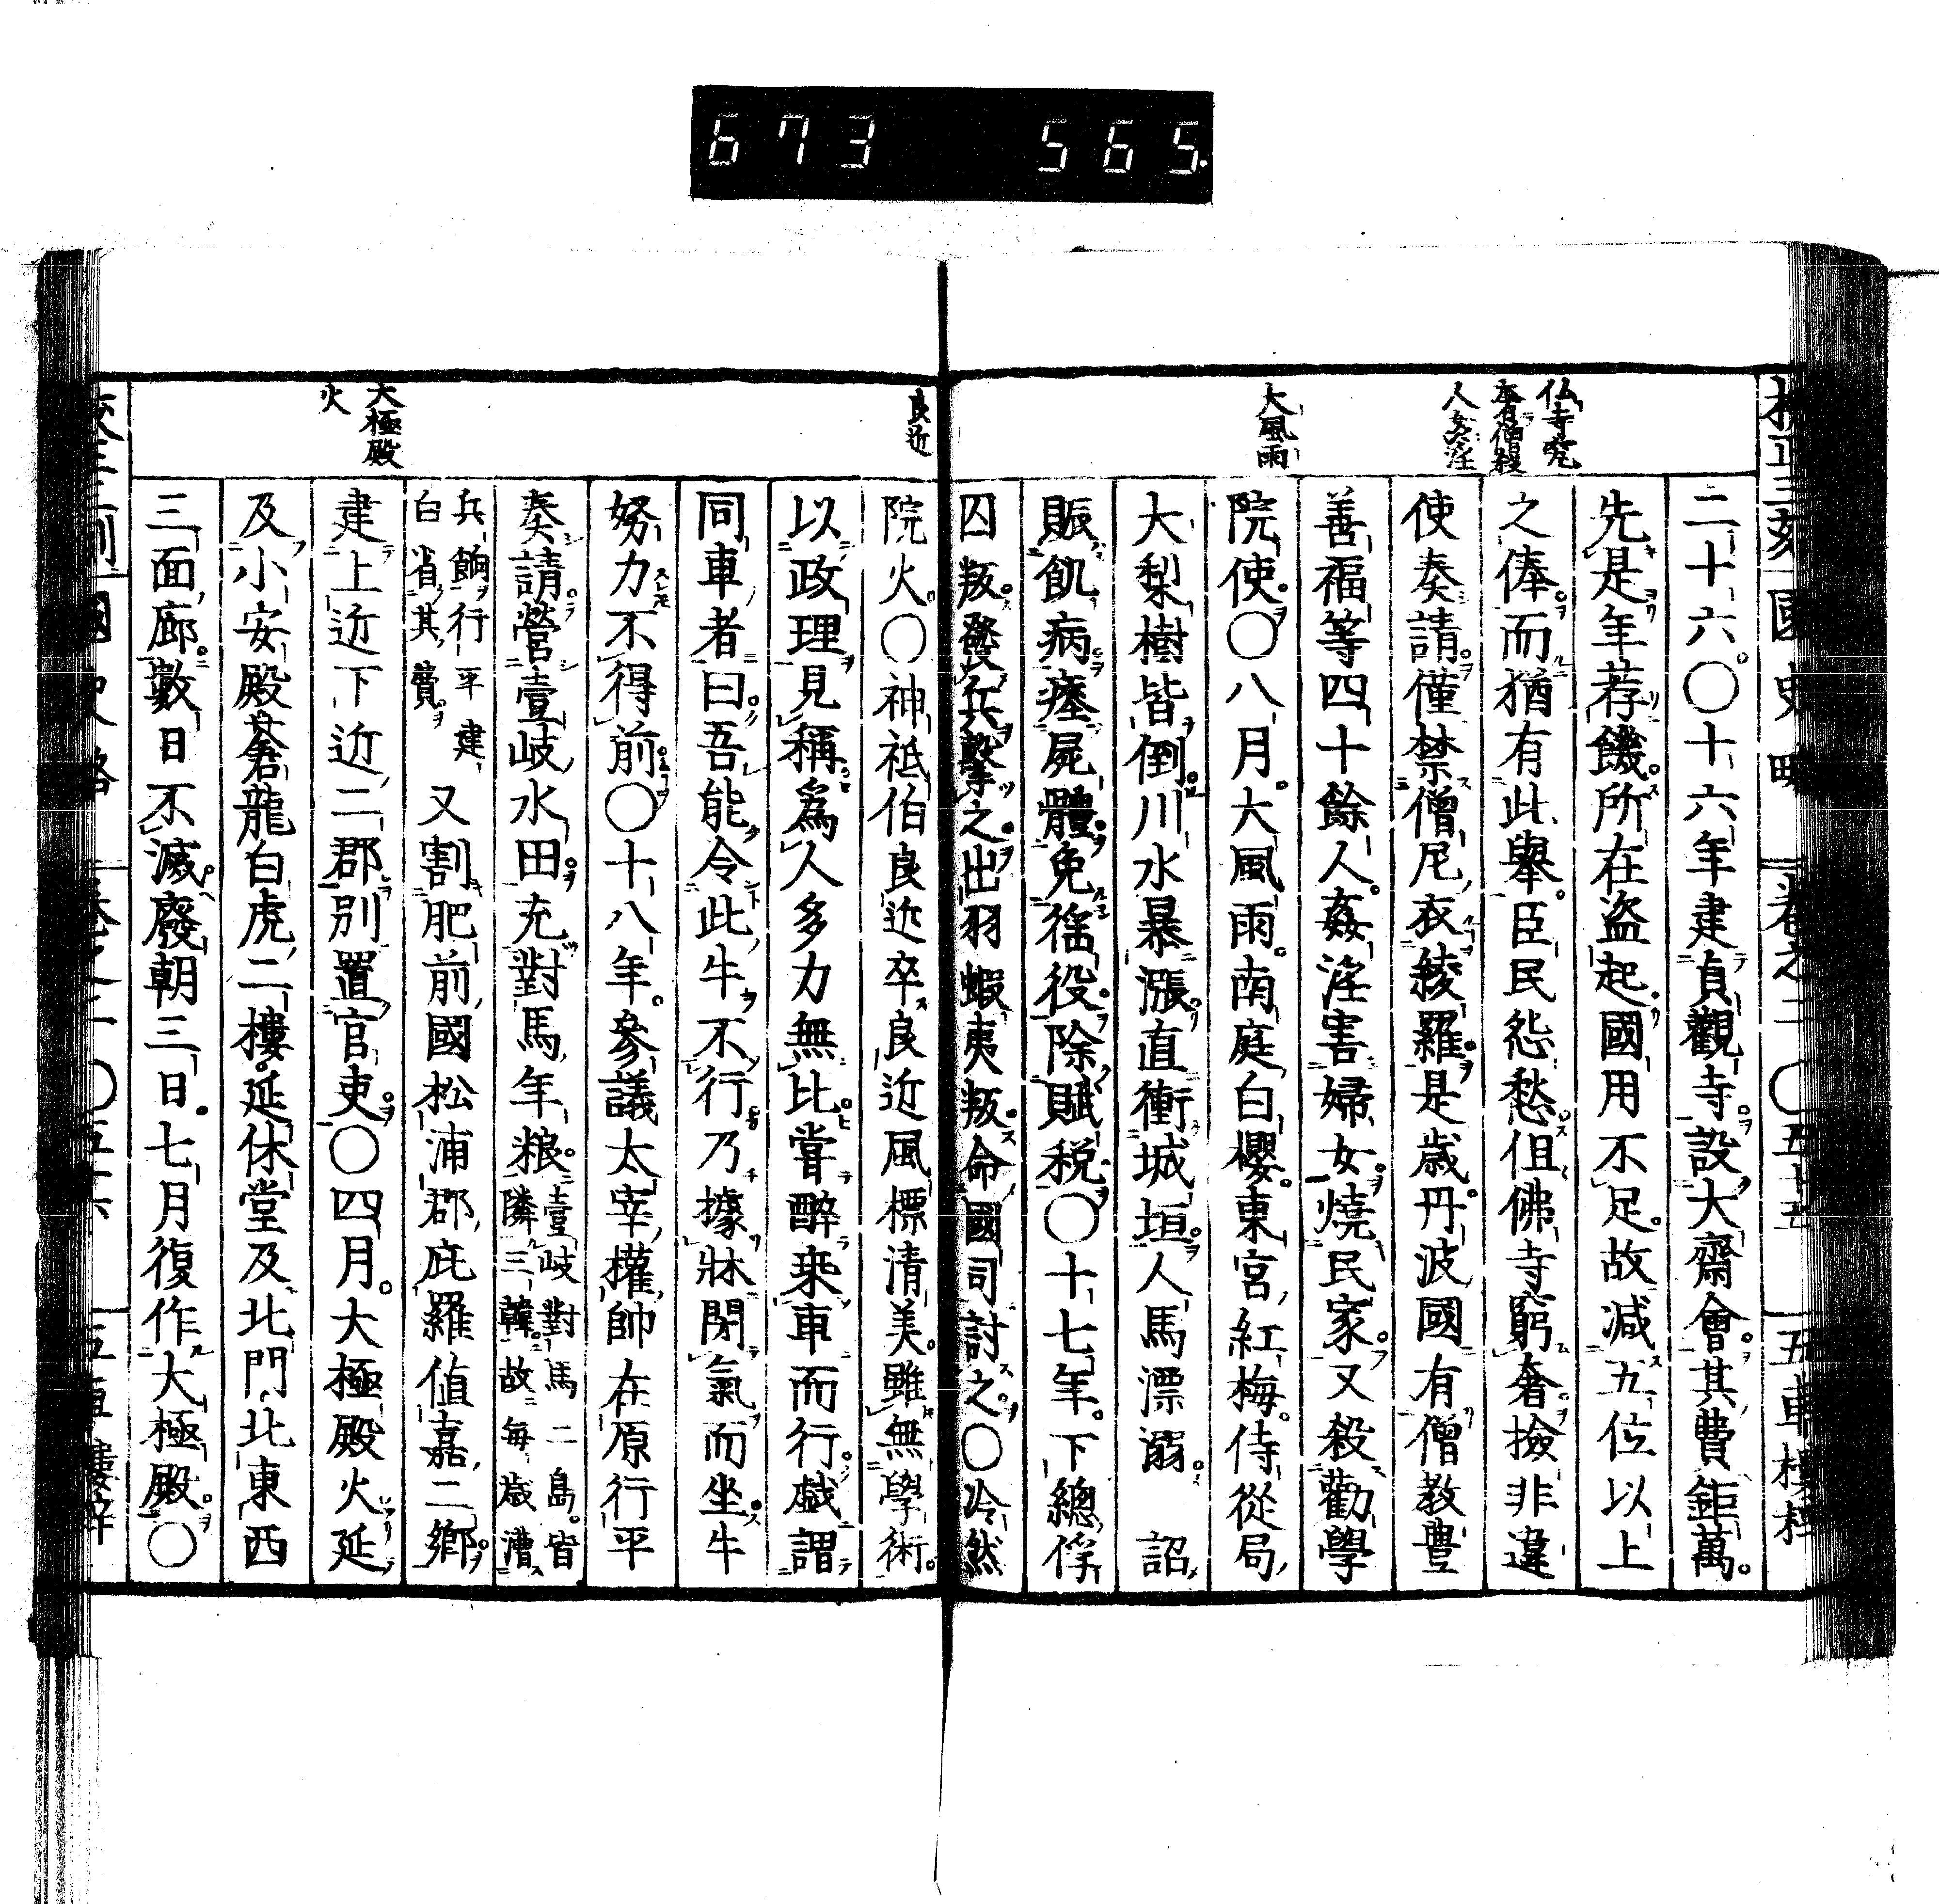 673 565.
仏寺究
奢有僧殺
人女淫
大風雨
二十六○十六年建貞觀寺設大齋會其費鉅萬
先是年荐饑所在盜起國用不足故減五位以上
之俸而猶有此舉臣民怨愁但佛寺窮奢撿非違
使奏請僅禁僧尼衣綾羅是歲丹波國有僧教豊
善福等四十餘人姦淫害婦女燒民家又殺勸學
院使○八月大風雨南庭白櫻東宮紅梅侍從局
大梨樹皆倒川水暴漲直衝城垣人馬漂溺 詔
賑飢病瘞屍體免徭役除賦税○十七年下總俘
囚叛發兵擊之出羽蝦夷叛命國司討之○冷然
良近
大極殿
火
院火○神祇伯良近卒良近風標清美雖無學術
以政理見稱爲人多力無比甞醉乗車而行戯謂
同車者曰吾能令此牛不行乃據牀閉氣而坐牛
努力不得前○十八年參議太宰權帥在原行平
奏請營壹岐水田充對馬年粮壹岐對馬二島皆
隣三韓故每歲漕
兵餉行平建
白省其費又割肥前國松浦郡庇羅値嘉二鄉
建上近下近二郡別置官吏○四月大極殿火延
及小安殿蒼龍白虎二樓延休堂及北門北東西
三面廊數日不滅廢朝三日七月復作大極殿○